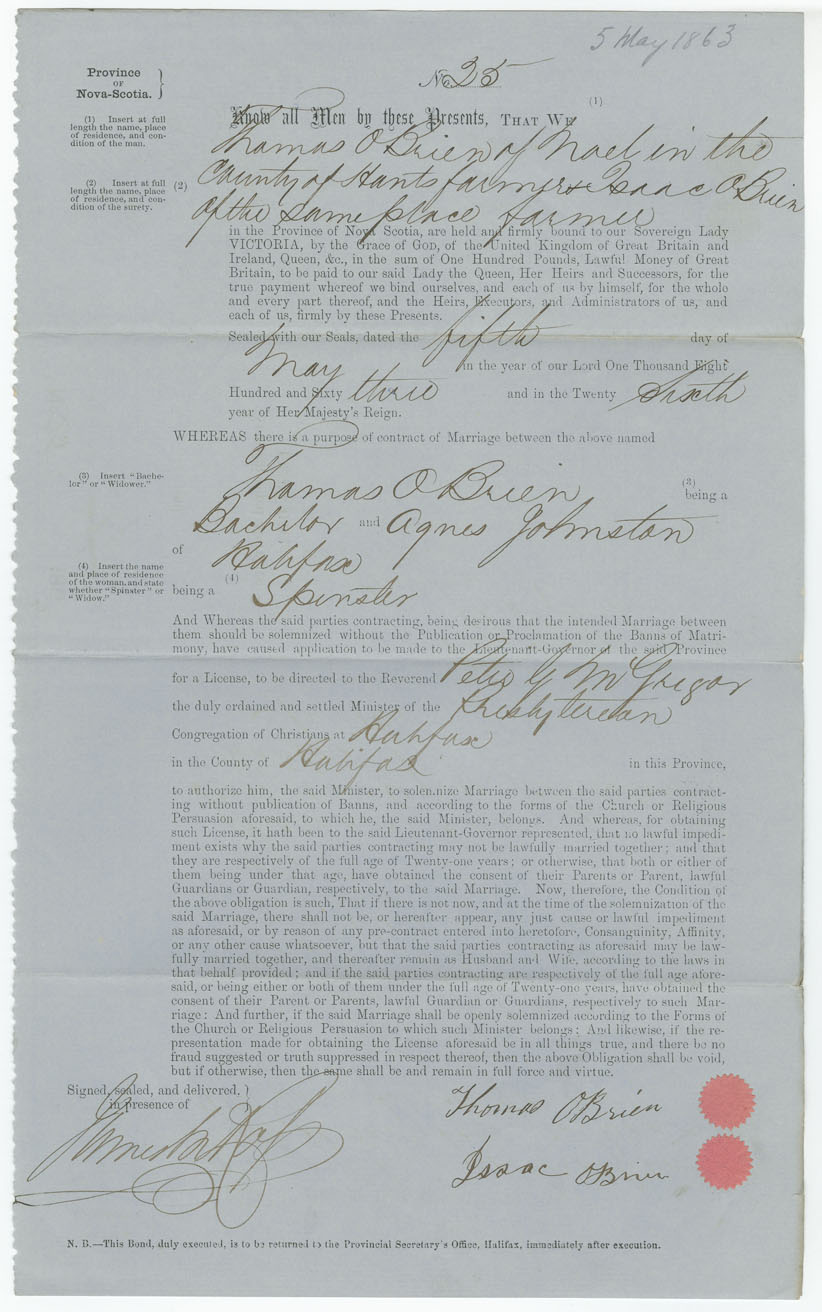 5 May 1863
Province
OF
Nova-Scotia.
No. 25
(1)
Know all Men by these Presents, THAT WE
(1) Insert at full
length the name, place
of residence, and con-
dition of the man.
Thomas O'Brien of Noel in the
(2) Insert at full
length the name, place
of residence, and con-
dition of the surety.
(2)
County of Hants farmer & Isaac O'Brien
of the same place farmer
in the Province of Nova Scotia, are held and firmly bound to our Sovereign Lady
VICTORIA, by the Grace of GOD, of the United Kingdom of Great Britain and
Ireland, Queen, &c., in the sum of One Hundred Pounds, Lawful Money of Great
Britain, to be paid to our said Lady the Queen, Her Heirs and Successors, for the
true payment whereof we bind ourselves, and each of us by himself, for the whole
and every part thereof, and the Heirs, Executors, and Administrators of us, and
each of us, firmly by these Presents.
Sealed with our Seals, dated the fifth day of
May in the year of our Lord One Thousand Eight
Hundred and Sixty three and in the Twenty Sixth
year of Her Majesty's Reign.
WHEREAS there is a purpose of contract of Marriage between the above named
(3) Insert "Bache-
lor" or "Widower."
Thomas O'Brien (3) being a
Bachelor and Agnes Johnston
of Halifax
(4) Insert the name
and place of residence
of the woman, and state
whether "Spinster" or
"Widow."
(4)
being a Spinster
And Whereas the said parties contracting, being desirous that the intended Marriage between
them should be solemnized without the Publication or Proclamation of the Banns of Matri-
mony, have caused application to be made to the Lieutenant-Governor of the said Province
for a License, to be directed to the Reverend Peter G McGregor
the duly ordained and settled Minister of the Presbyterean
Congregation of Christians at Halifax
in the County of Halifax in this Province,
to authorize him, the said Minister, to solemnize Marriage between the said parties contract-
ing without publication of Banns, and according to the forms of the Church or Religious
Persuasion aforesaid, to which he, the said Minister, belongs. And whereas, for obtaining
such License, it hath been to the said Lieutenant-Governor represented, that no lawful impedi-
ment exists why the said parties contracting may not be lawfully married together; and that
they are respectively of the full age of Twenty-one years; or otherwise, that both or either of
them being under that age, have obtained the consent of their Parents or Parent, lawful
Guardians or Guardian, respectively, to the said Marriage. Now, therefore, the Condition of
the above obligation is such, That if there is not now, and at the time of the solemnization of the
said Marriage, there shall not be, or hereafter appear, any just cause or lawful impediment
as aforesaid, or by reason of any pre-contract entered into heretofore, Consanguinity, Affinity,
or any other cause whatsoever, but that the said parties contracting as aforesaid may be law-
fully married together, and thereafter remain as Husband and Wife, according to the laws in
that behalf provided; and if the said parties contracting are respectively of the full age afore-
said, or being either or both of them under the full age of Twenty-one years, have obtained the
consent of their Parent or Parents, lawful Guardian or Guardians, respectively to such Mar-
riage: And further, if the said Marriage shall be openly solemnized according to the Forms of
the Church or Religious Persuasion to which such Minister belongs: And likewise, if the re-
presentation made for obtaining the License aforesaid be in all things true, and there be no
fraud suggested or truth suppressed in respect thereof, then the above Obligation shall be void,
but if otherwise, then the same shall be and remain in full force and virtue.
Signed, sealed, and delivered,
in presence of
Thomas OBrien
Isaac OBrien
N. B.—This Bond, duly executed, is to be returned to the Provincial Secretary's Office, Halifax, immediately after execution.